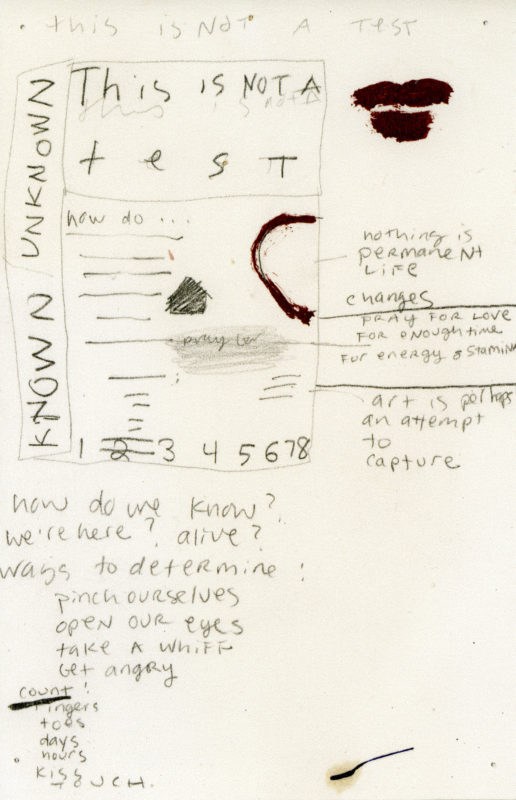 this is NOT A TEST
This is NOT A
this is not A
t e s T
KNOWN UNKNOWN
how do ...
pray for
1 2 3 4 5 6 7 8
nothing is
permanent
LIFE
changes
PRAY FOR LOVE
FOR enough time
FOR energy & STAMINA
art is perhaps
an attempt
to
capture
how do we know?
we're here? alive?
ways to determine:
pinch ourselves
open our eyes
take A WHIFF
Get angry
count:
fingers
toes
days
hours
KISS
TOUCH.